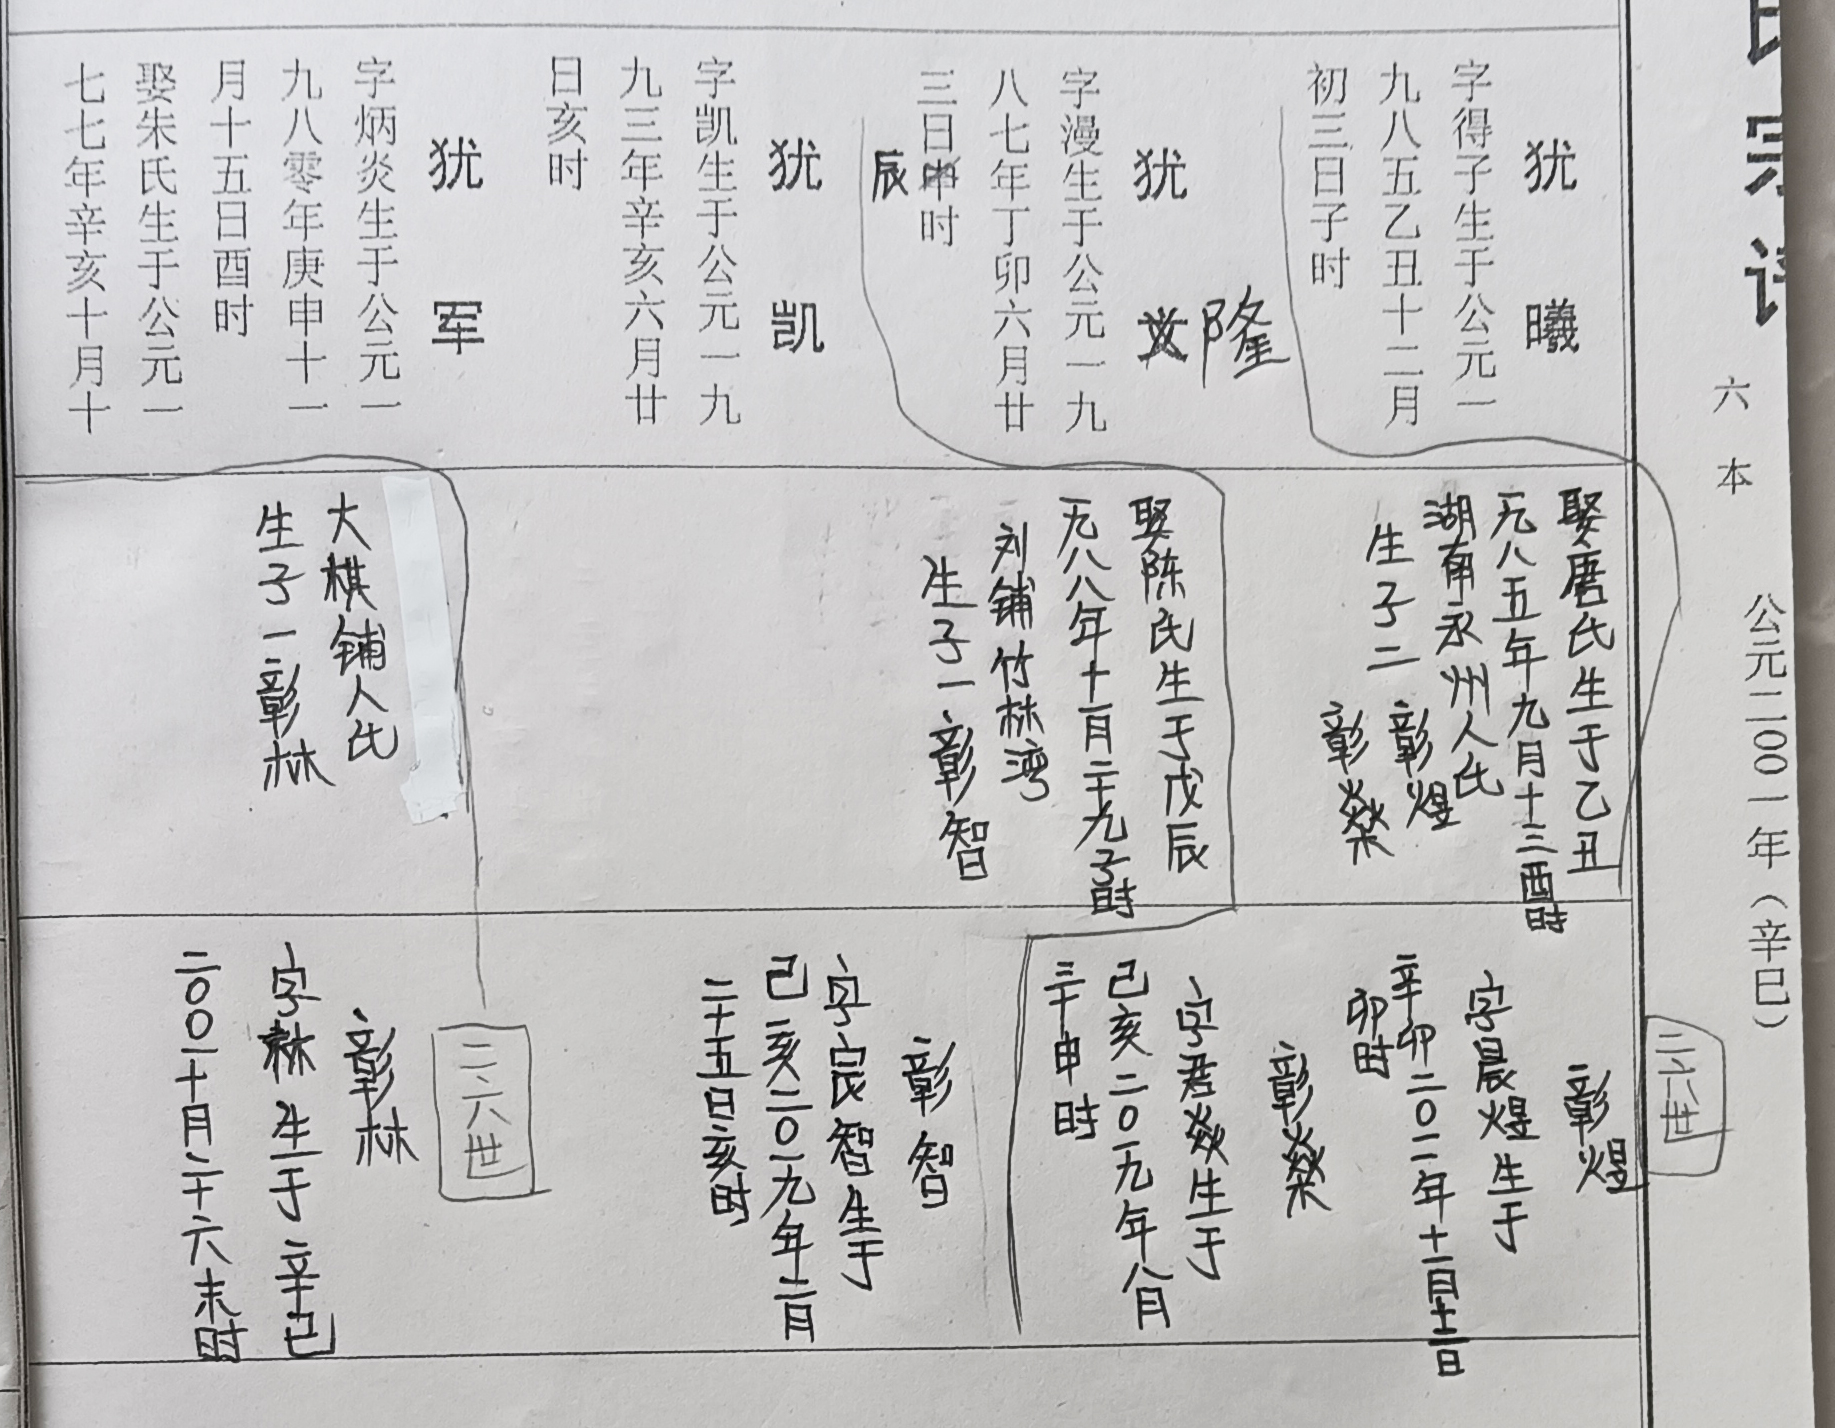 氏宗谱
六本
公元二〇〇一年（辛巳）
二六世
犹曦
字得子生于公元一
九八五乙丑十二月
初三日子时
犹
隆
字漫生于公元一九
八七年丁卯六月廿
三日申时
辰
犹凯
字凯生于公元一九
九三年辛亥六月廿
日亥时
犹军
字炳炎生于公元一
九八零年庚申十一
月十五日酉时
娶朱氏生于公元一
七七年辛亥十月十
娶唐氏生于乙丑
一九八五年九月十三酉时
湖南永州人氏
生子二 彰煌
彰燊
娶陈氏生于戊辰
一九八八年十一月二十九子时
刘铺竹林湾
生子一彰智
大棋铺人氏
生子一彰林
彰煌
字晨煌生于
辛卯二〇一一年十一月十三日
卯时
彰燊
字君焱生于
己亥二〇一九年八月
三十申时
彰智
字宸智生于
己亥二〇一九年二月
二十五日亥时
二六世
彰林
字林生于辛巳
二〇〇一十月二十六未时